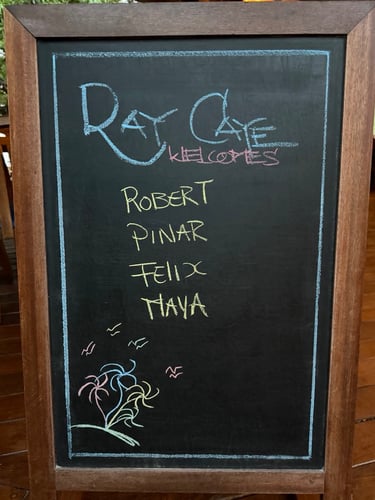 RAY CAYE
WELCOMES
ROBERT
PINAR
FELIX
MAYA